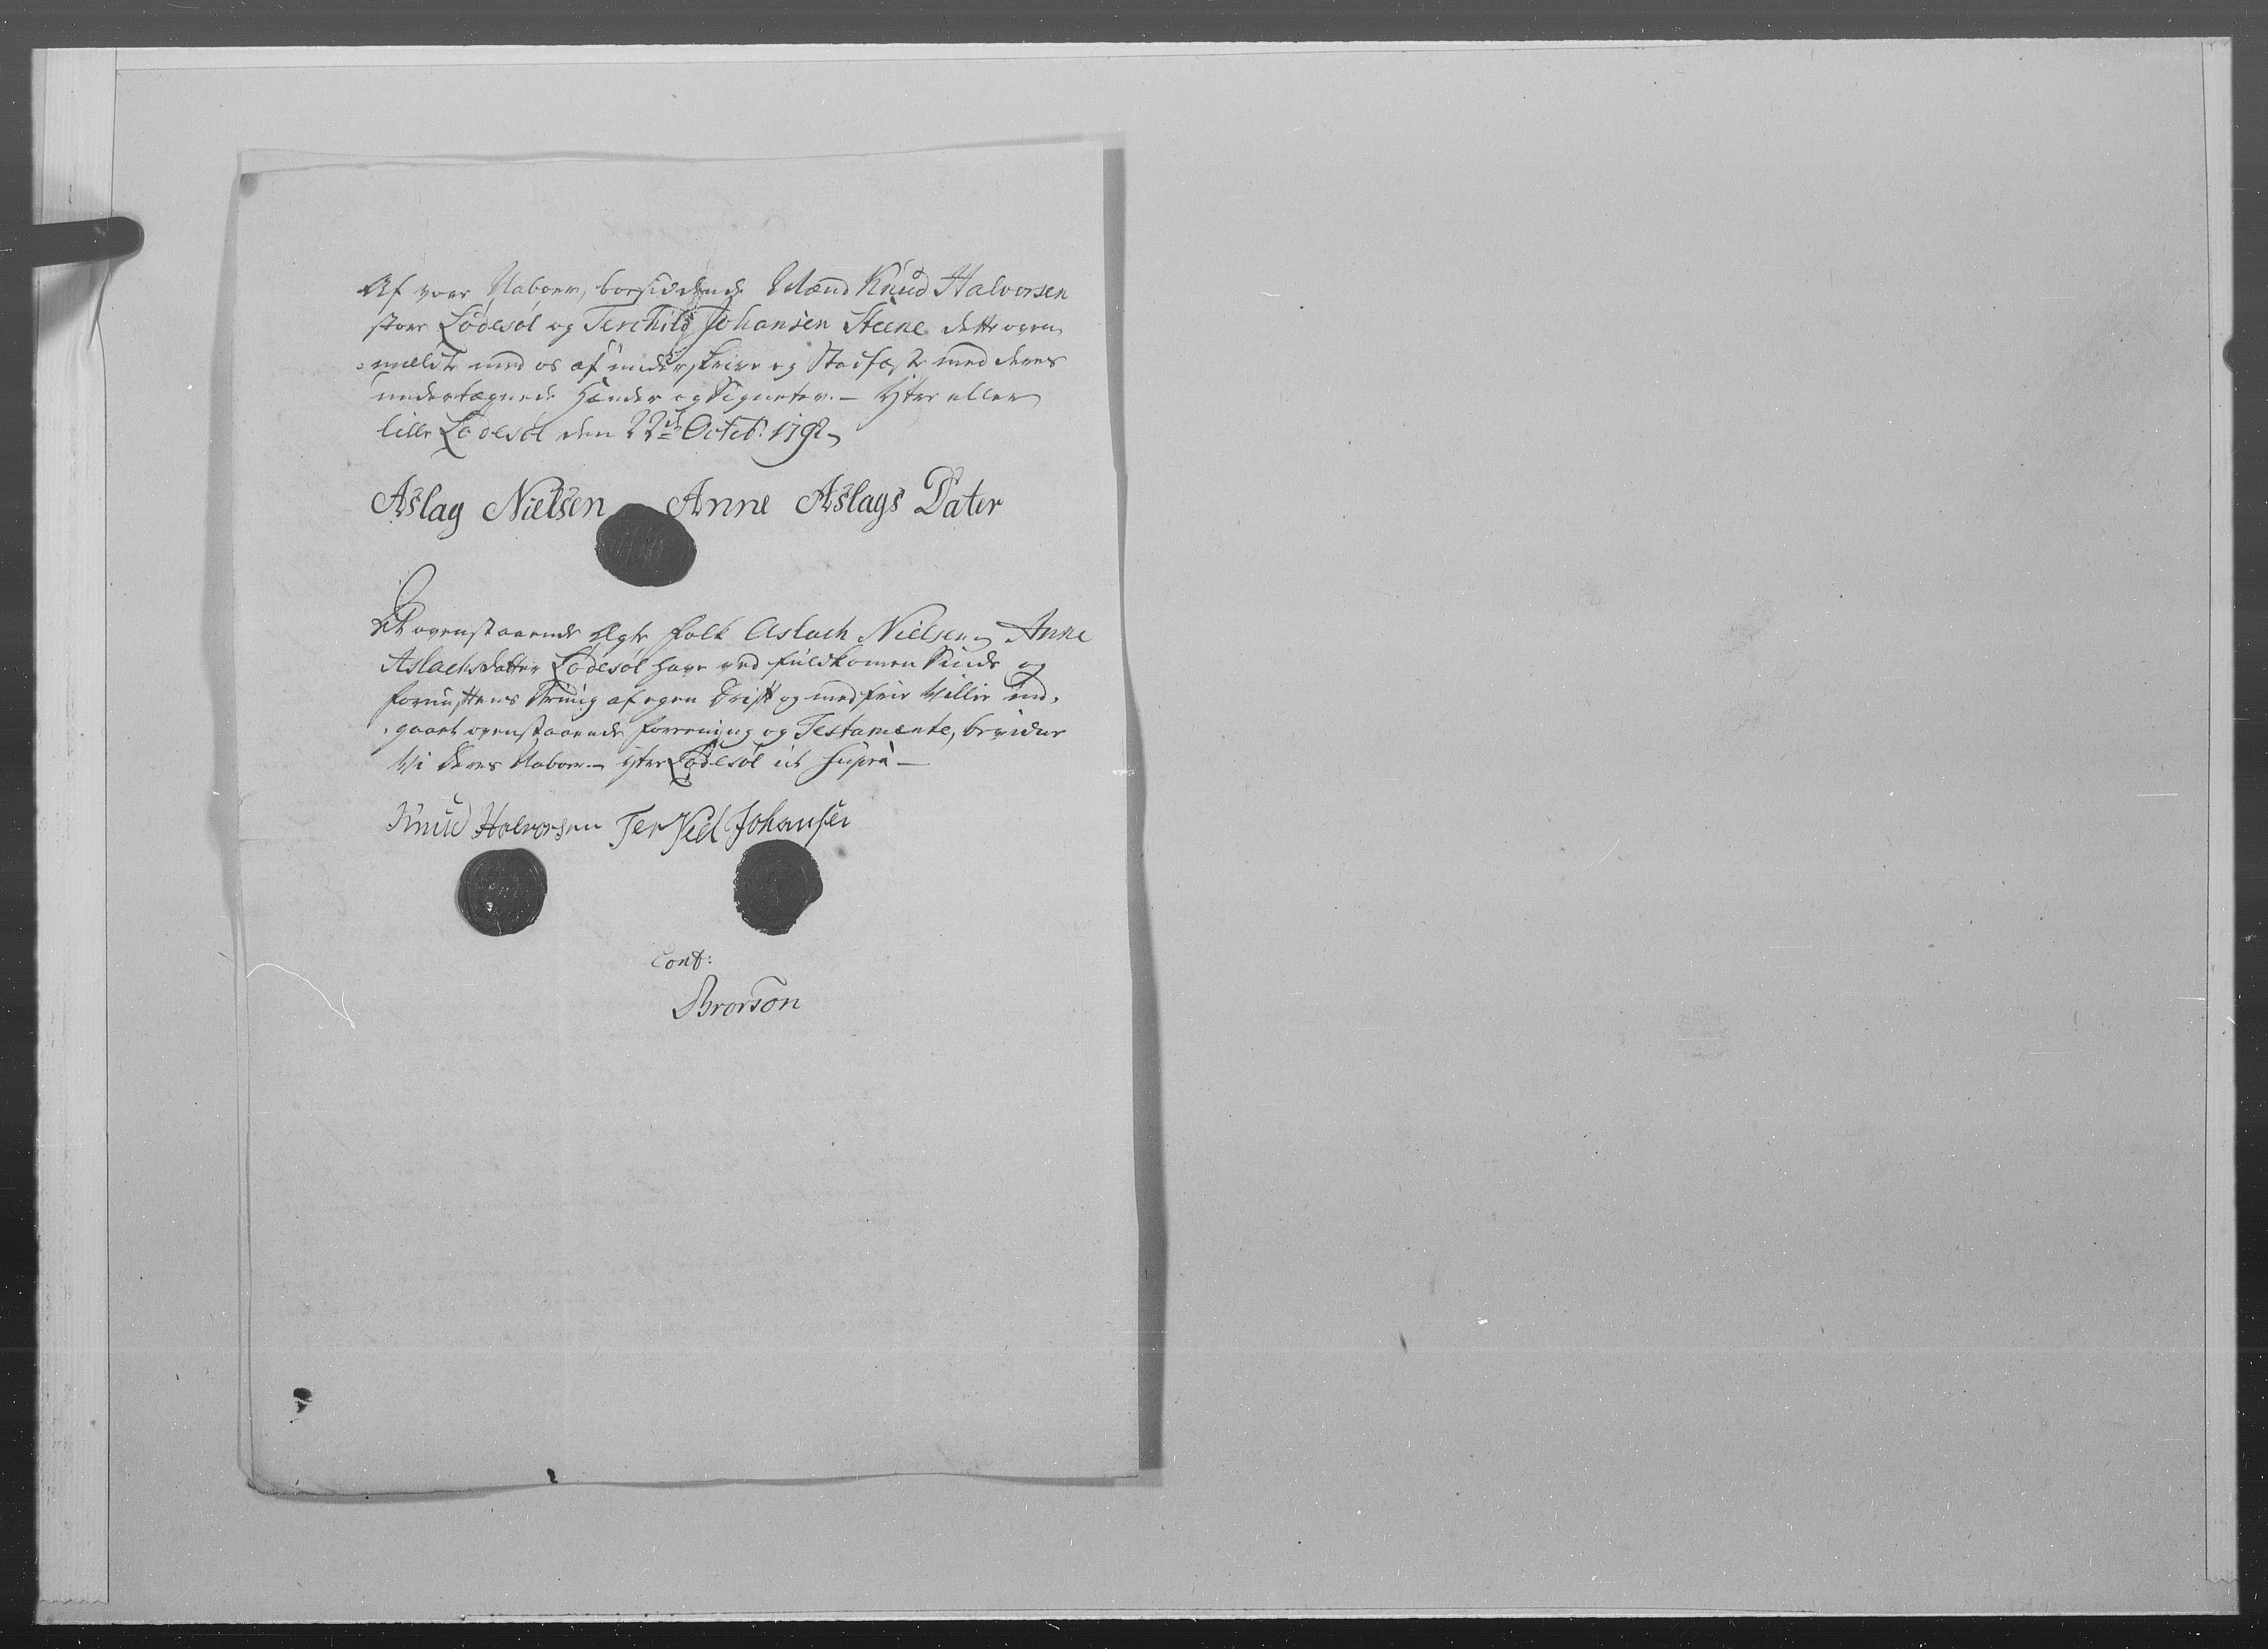 Af vore Naboer, boesiddende Mænd Knud Halvorsen
store Lodesøl og Terchild Johansen Steene dette oven
mældte med os at underskrive og Stadfæste med deres
undertegnede Hænder og Signeter. — Yttre eller
lille Lodesøl den 22de Octob: 1792
Aslag Nielsen Anne Aslags Dater
At ovenstaaende Ægte folk Aslach Nielsen og Anne
Aslachsdatter Lodesøl have ved fuldkomen Sinds og
fornuftens brug af egen Drift og med frie Villie ind-
gaaet ovenstaaende foreening og Testamente, bevidner
Vi deres Naboer. — Yttre Lodesøl ut supra —
Knud Halvorsen Terkield Johansen
Conf:
Brorson